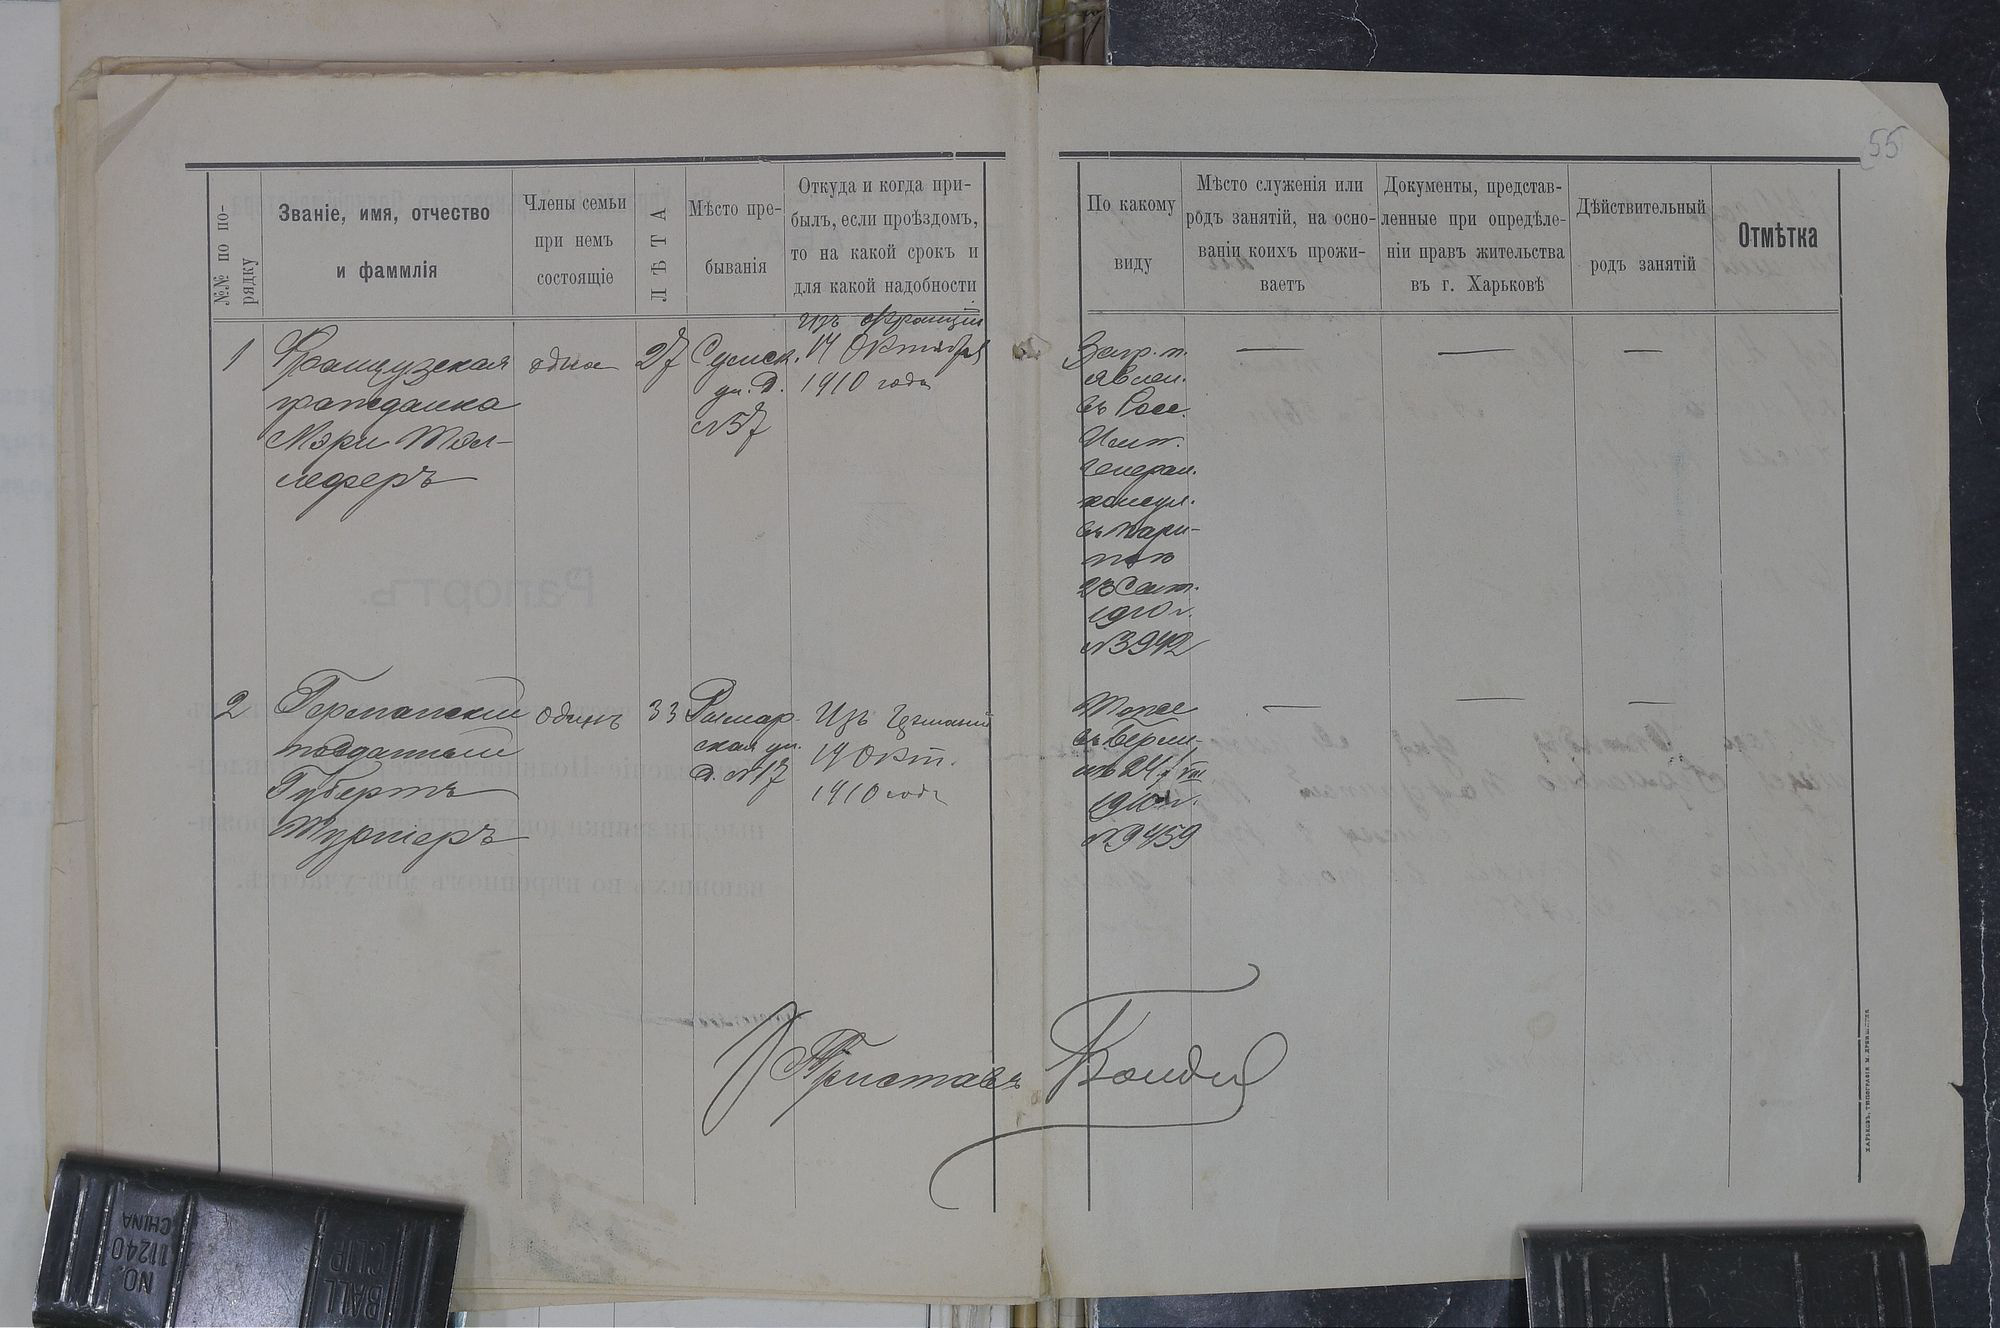 55
№№ по по-
рядку
Званіе, имя, отчество
и фаммлія
Члены семьи
при немъ
состоящіе
ЛѢТА
Мѣсто пре-
быванія
Откуда и когда при-
былъ, если проѣздомъ,
то на какой срокъ и
для какой надобности
По какому
виду
Мѣсто служенія или
родъ занятій, на осно-
ваніи коихъ прожи-
ваетъ
Документы, представ-
ленные при опредѣле-
ніи правъ жительства
въ г. Харьковѣ
Дѣйствительный
родъ занятій
Отмѣтка
1
Французская
гражданка
Мэри
одна
27
Сумск.
ул. д.
№57
Изъ Франціи
14 Октября
1910 года
Загр. п.
явлен.
въ Росс.
Имп.
Генерал.
консул.
въ Пари-
23 Сент.
1910 г.
№3942
—
—
—
2
Германскій
подданный
Губертъ
Турнеръ
одинъ
33
Рымар-
ская ул.
д. №17
Изъ Германіи
19 Окт.
1910 года
Тоже
въ Берли-
нѣ 24/VIII
1910 г.
№9459
—
—
—
Приставъ
ХАРЬКОВЪ, ТИПОГРАФІЯ
NO. 11240
CHINA
BALL
CLIP